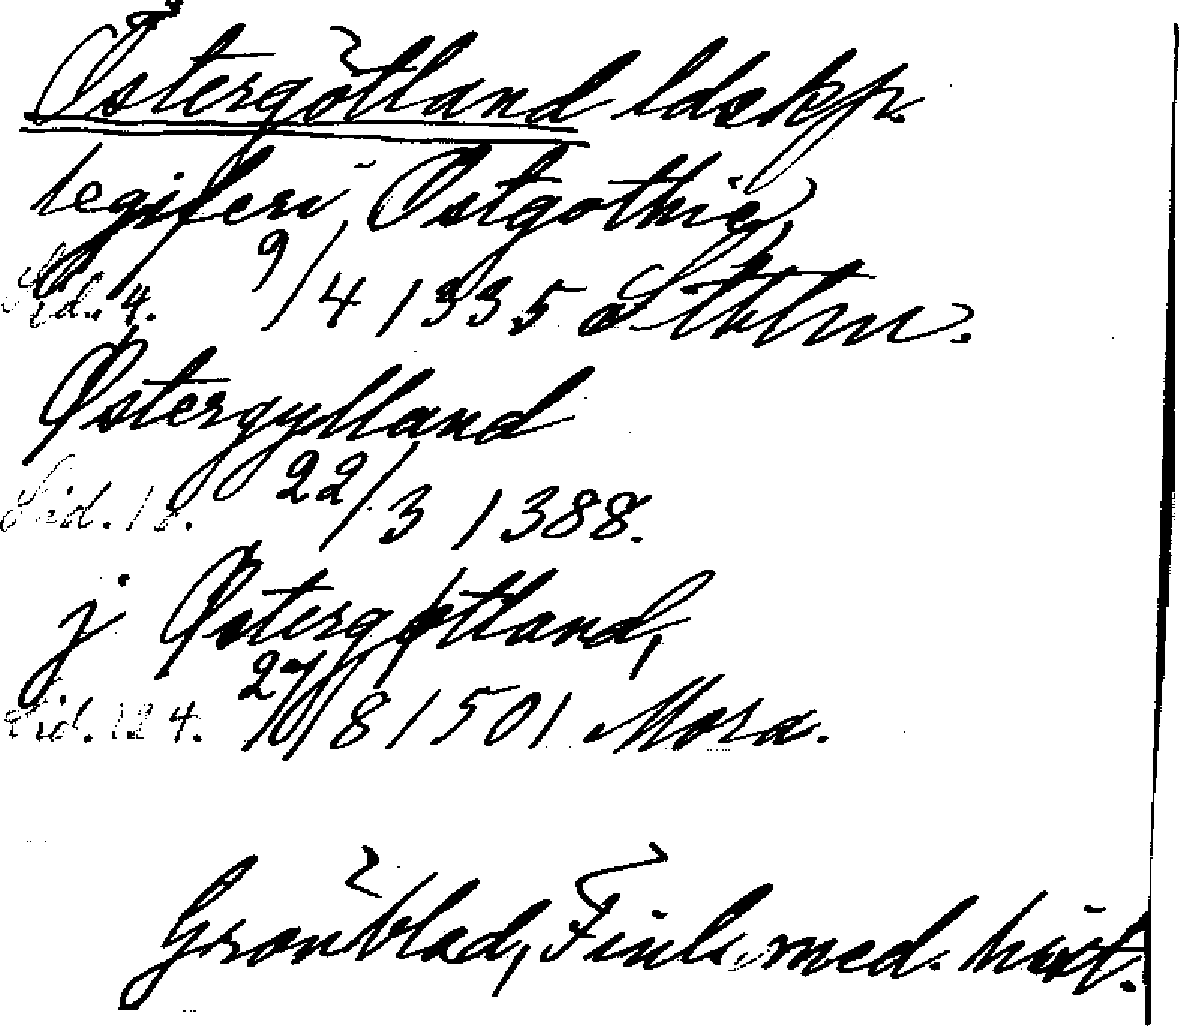 Östergötland ldskp.
legiferi Østgothie
Sid. 4. 9/4 1335 Sthlm.
Østergylland
Sid. 18. 22/3 1388.
j Østergøtland,
Sid. 124. 27/8 1501 Mora.
Grönblad, Finl. med. hist.